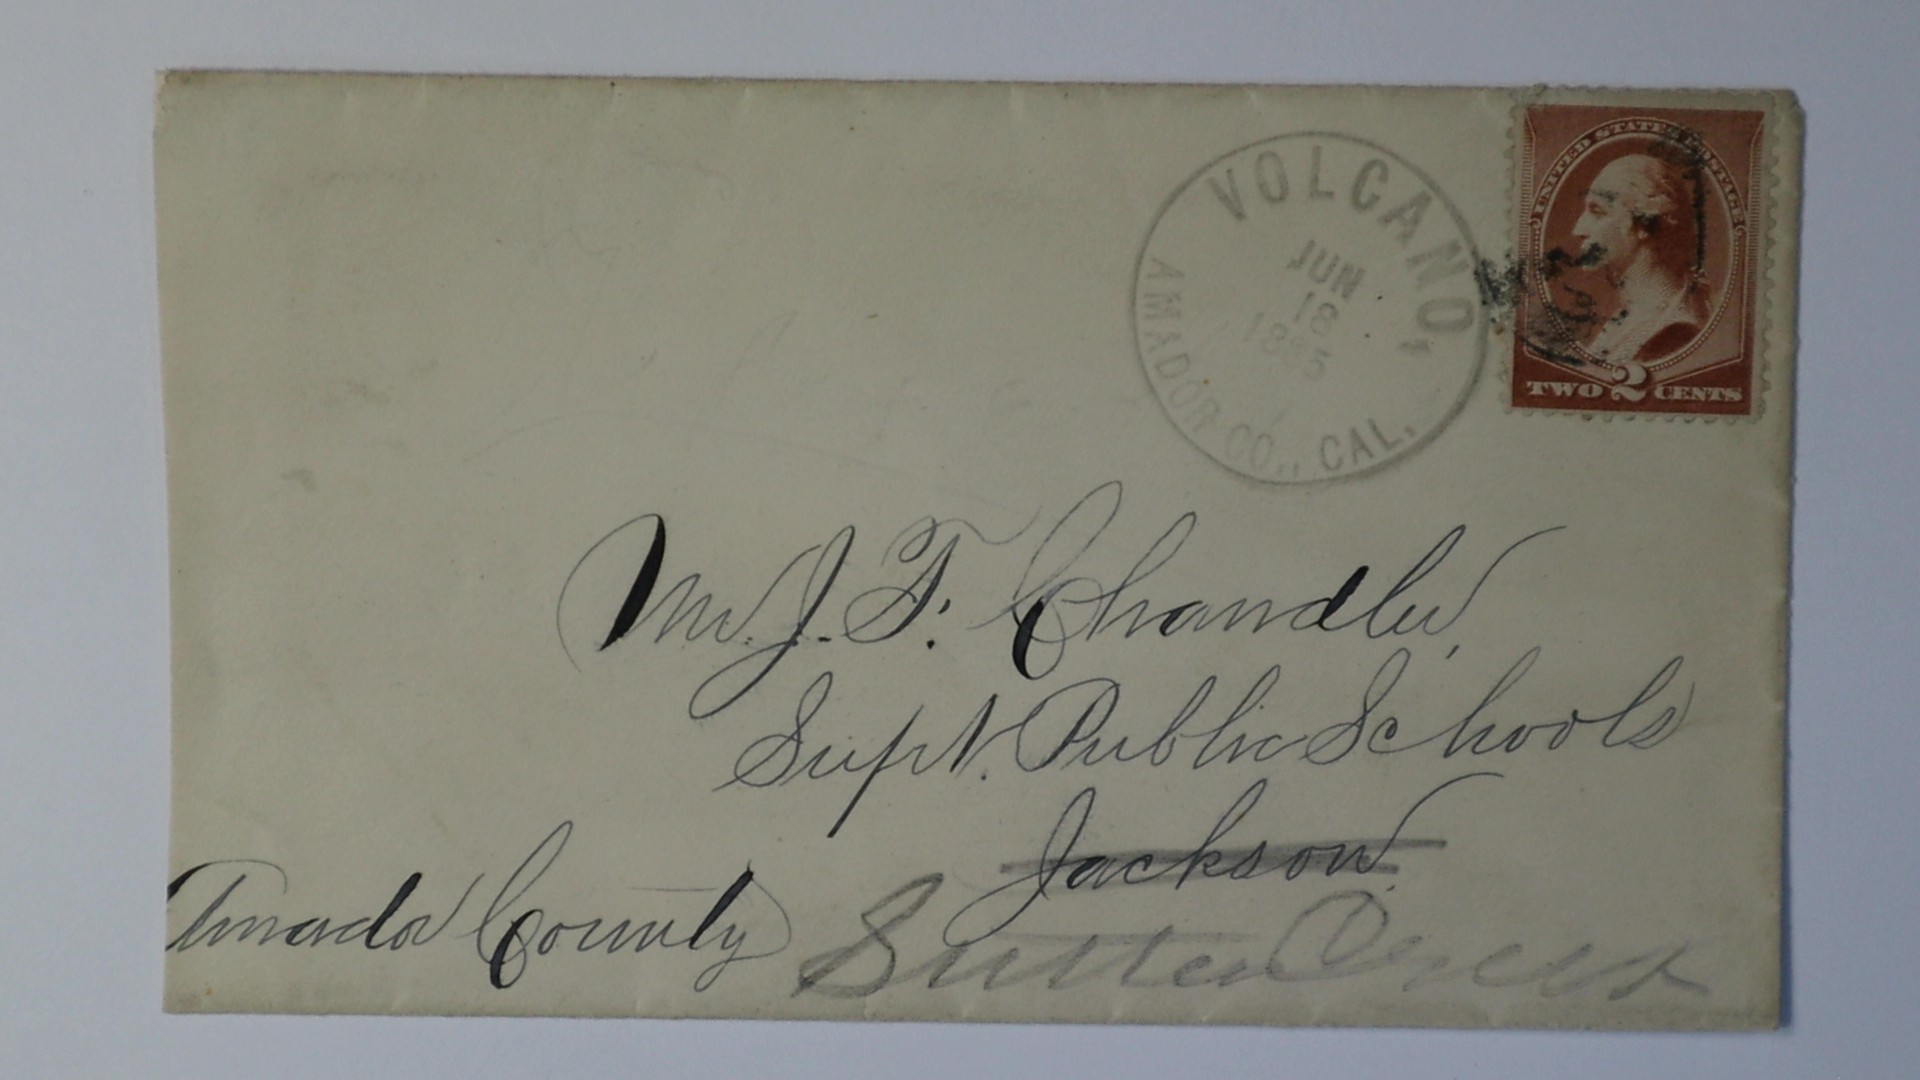 VOLCANO,
JUN
18
1885
AMADOR CO., CAL.
UNITED STATES POSTAGE
TWO 2 CENTS
Mr. J. F. Chandler,
Supt. Public Schools
Jackson
Amador County
Sutter Creek